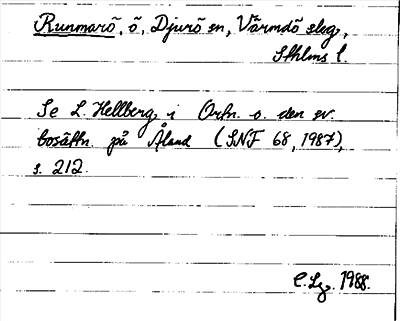 Runmarö, ö, Djurö sn, Värmdö slg,
Sthlms l.
Se L. Hellberg i Ortn. o. den sv.
bosättn. på Åland (SNF 68, 1987),
s. 212.
C.Lg. 1988.